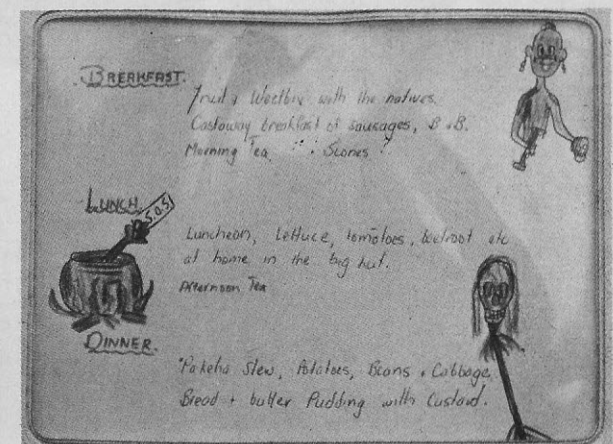 BREAKFAST.
Fruit & Weetbix with the natives.
Castaway breakfast of sausages, B & B.
Morning Tea " Scones "
LUNCH
S.O.S.
Luncheon, Lettuce, tomatoes, beetroot etc
at home in the big hut.
Afternoon Tea
DINNER.
"Pakeha Stew, Potatoes, Beans & Cabbage
Bread + butter Pudding with Custard.